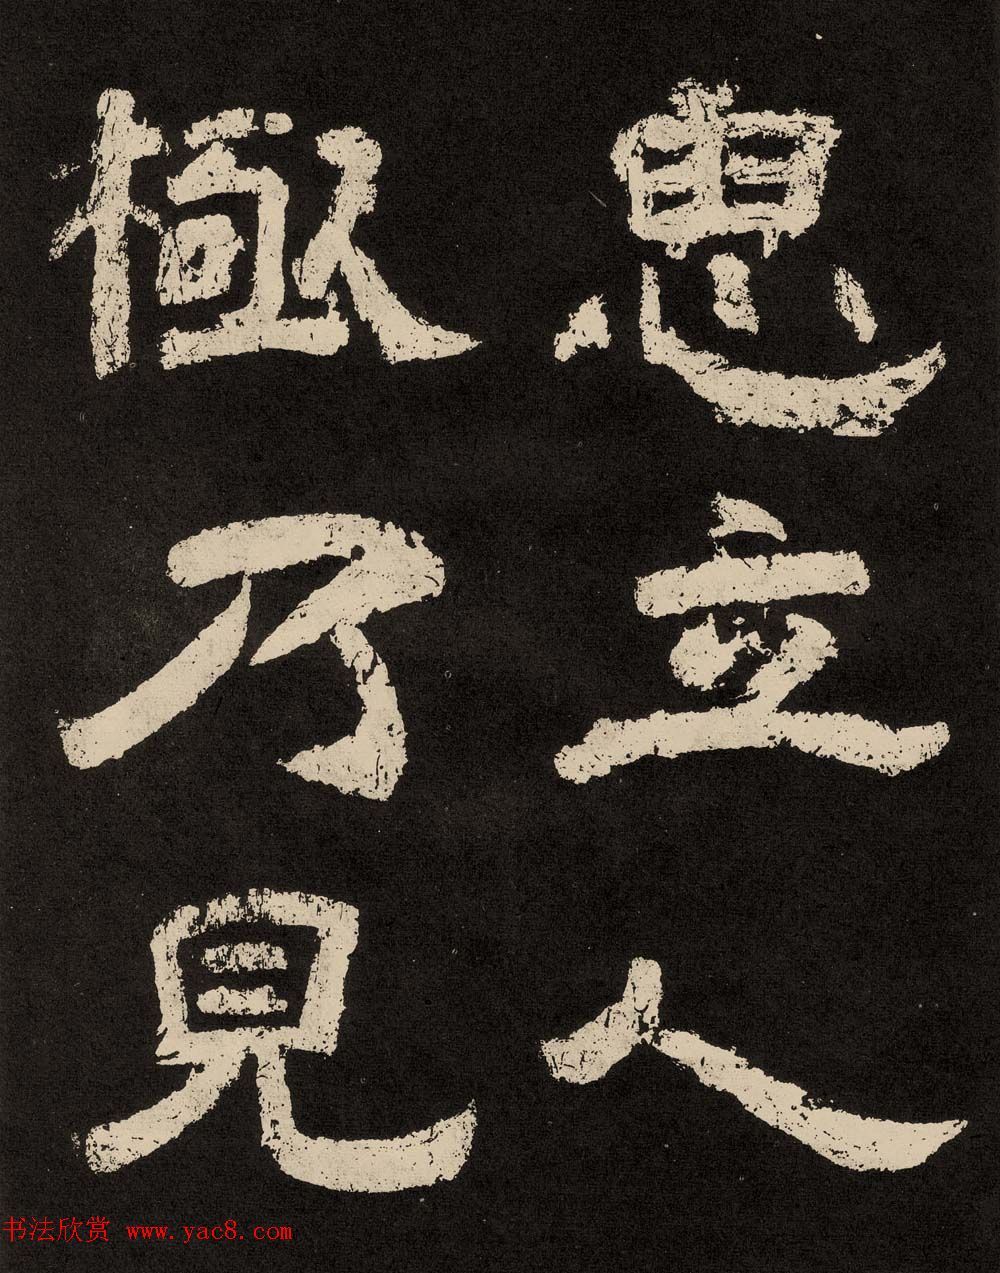 思立人
極乃見
书法欣赏 www.yac8.com